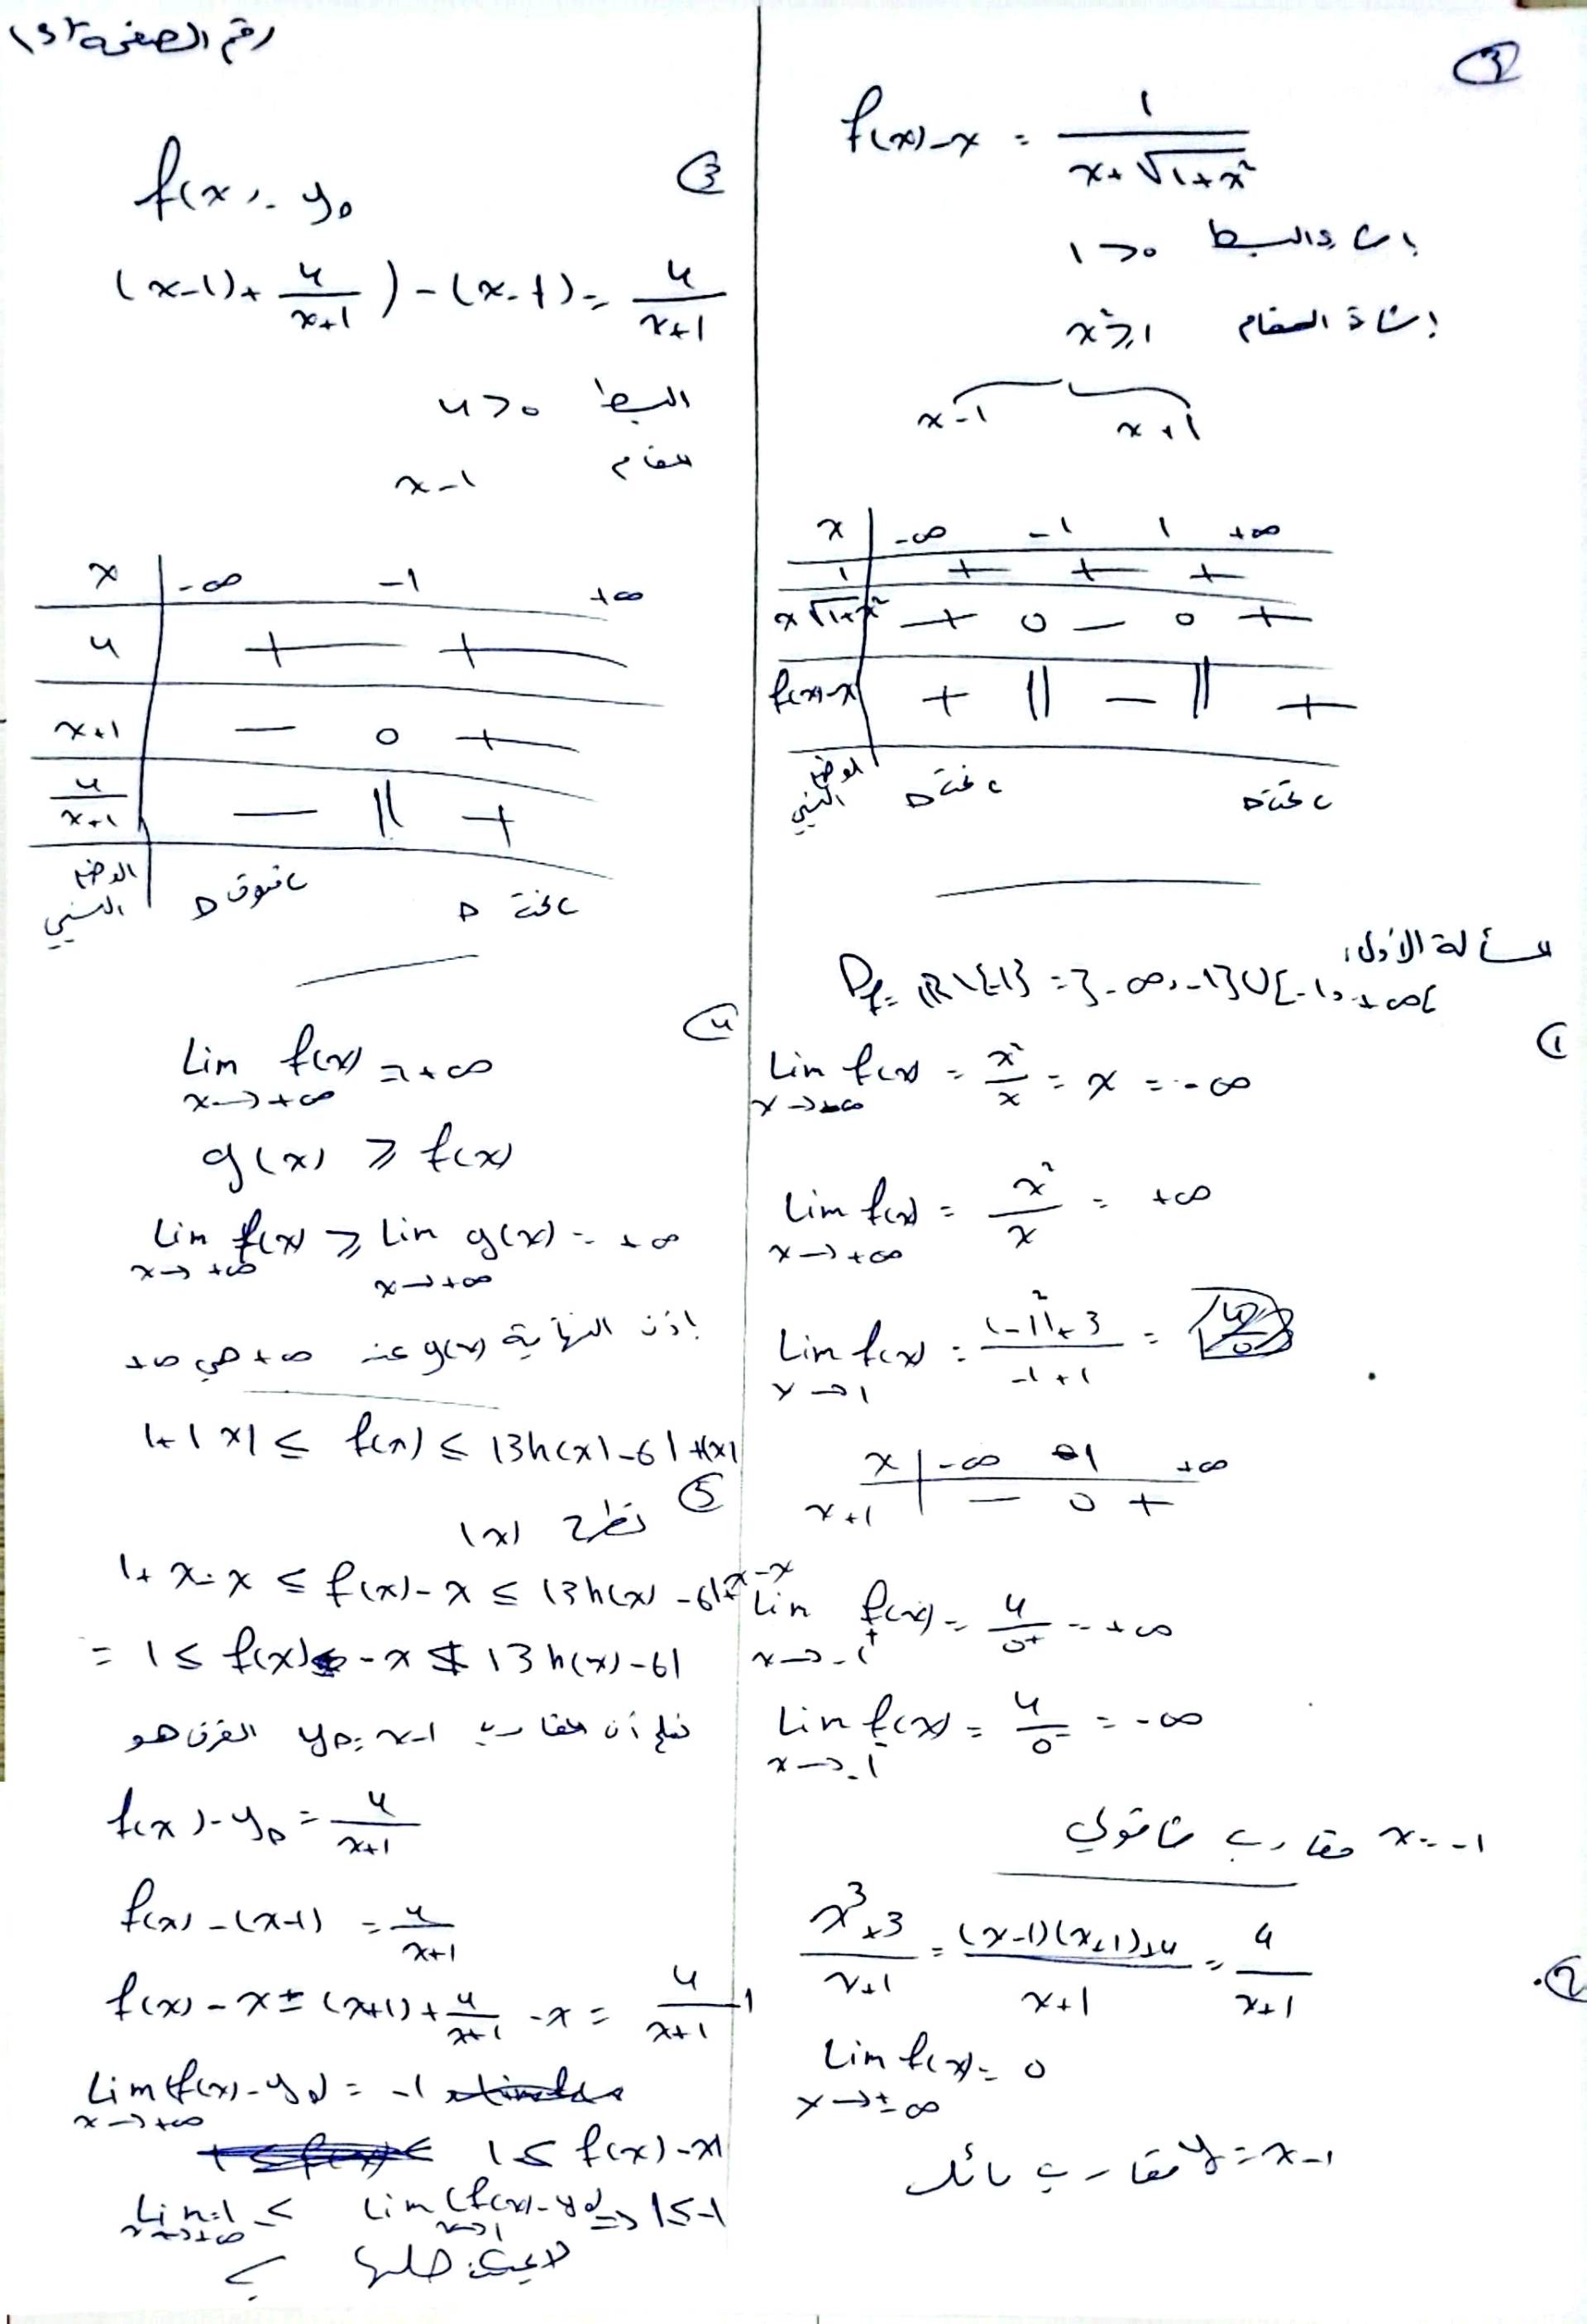 رقم الصفحة
③
f(x)-x = 1 / (x+√(1+x²))
إشارة البسط 1>0
إشارة المقام x²≥1
x-1 x+1
x | -∞ -1 1 +∞
1 | + + +
x √(1+x²) | + 0 - 0 +
f(x)-x | + || - || +
الوضع النسبي | C تحت D C تحت D
المسألة الأولى:
D_f = ℝ\{-1} = ]-∞,-1[∪]-1,+∞[
①
Lim f(x) = x²/x = x = -∞
Lim f(x) = x²/x = +∞
x→+∞
Lim f(x) = ((-1)²+3)/(-1+1) =
x→1
x | -∞ -1 +∞
x+1 | - 0 +
Lim f(x) = 4/0⁺ = +∞
x→-1⁺
Lim f(x) = 4/0⁻ = -∞
x→-1⁻
x=-1 مقارب شاقولي
②
(x³+3)/(x+1) = ((x-1)(x+1)+4)/(x+1) = 4/(x+1)
Lim f(x) = 0
x→±∞
y=x-1 مقارب مائل
③
f(x)-y_D
(x-1)+4/(x+1))-(x-1) = 4/(x+1)
البسط 4>0
المقام x-1
x | -∞ -1 +∞
4 | + +
x+1 | - 0 +
4/(x+1) | - || +
الوضع النسبي | C فوق D C تحت D
④
Lim f(x) = +∞
x→+∞
g(x) ≥ f(x)
Lim f(x) ≥ Lim g(x) = +∞
x→+∞ x→+∞
إذن النهاية g(x) عند +∞ هي +∞
1+|x| ≤ f(x) ≤ |3h(x)-6|+|x|
⑤
نطرح |x|
1+x-x ≤ f(x)-x ≤ |3h(x)-6|+x-x
= 1 ≤ f(x)-x ≤ |3h(x)-6|
نعلم أن المقارب y_D=x-1 الفرق هو
f(x)-y_D = 4/(x+1)
f(x)-(x-1) = 4/(x+1)
f(x)-x = (x+1)+4/(x+1) -x = 4/(x+1) -1
Lim(f(x)-y_D) = -1
x→+∞
1 ≤ f(x)-x
Lim 1 ≤ Lim(f(x)-y_D) => 1≤-1
x→+∞ x→1
لا يمكن حلها